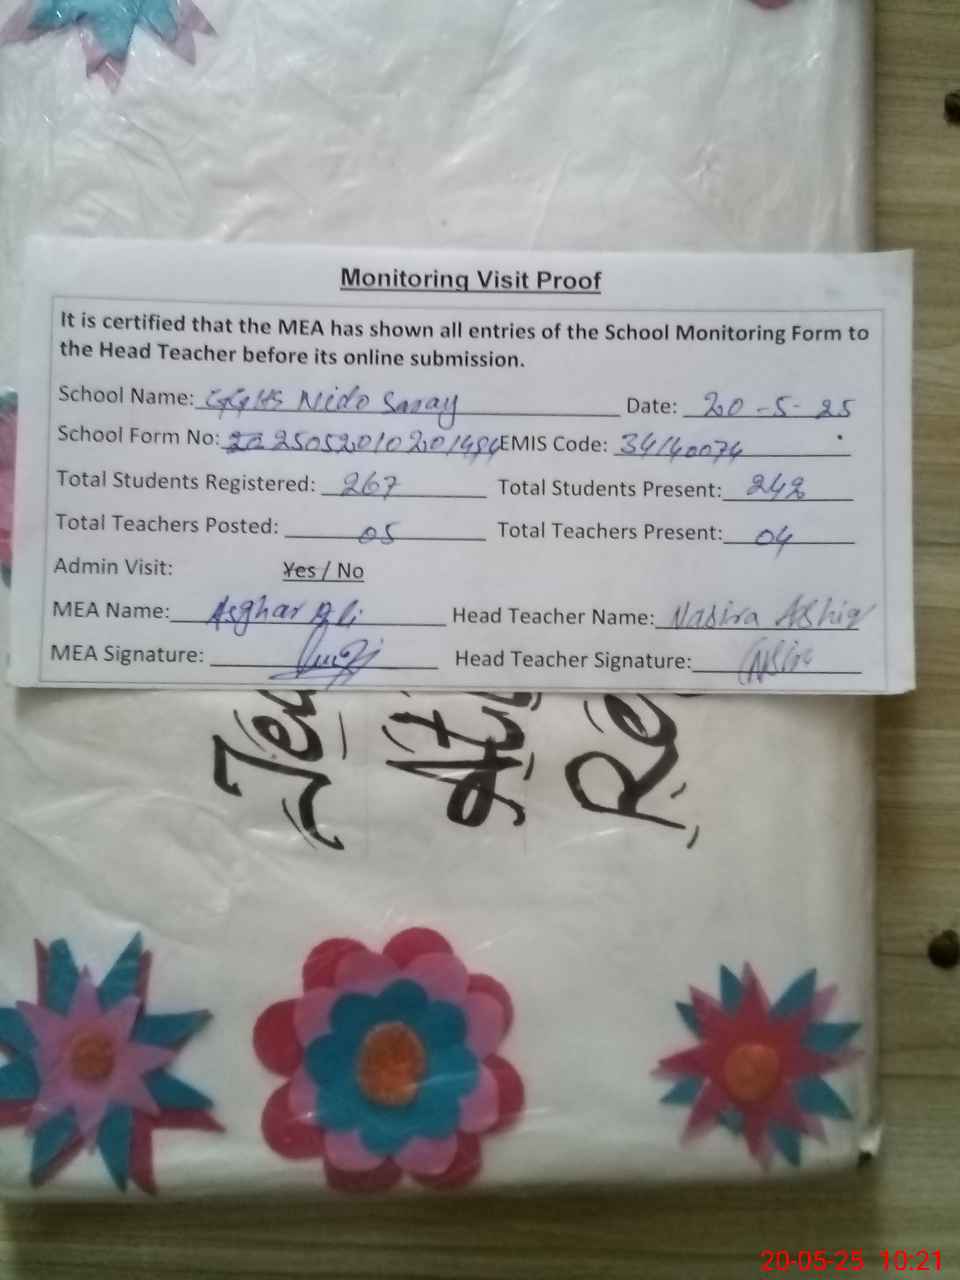 Monitoring Visit Proof
It is certified that the MEA has shown all entries of the School Monitoring Form to
the Head Teacher before its online submission.
School Name: GGHS Nido Saray Date: 20-5-25
School Form No: 25052010201484 EMIS Code: 34140074
Total Students Registered: 267 Total Students Present: 242
Total Teachers Posted: 05 Total Teachers Present: 04
Admin Visit: Yes / No
MEA Name: Asghar Ali Head Teacher Name: Nasira Ashiq
MEA Signature: Head Teacher Signature:
20-05-25 10:21